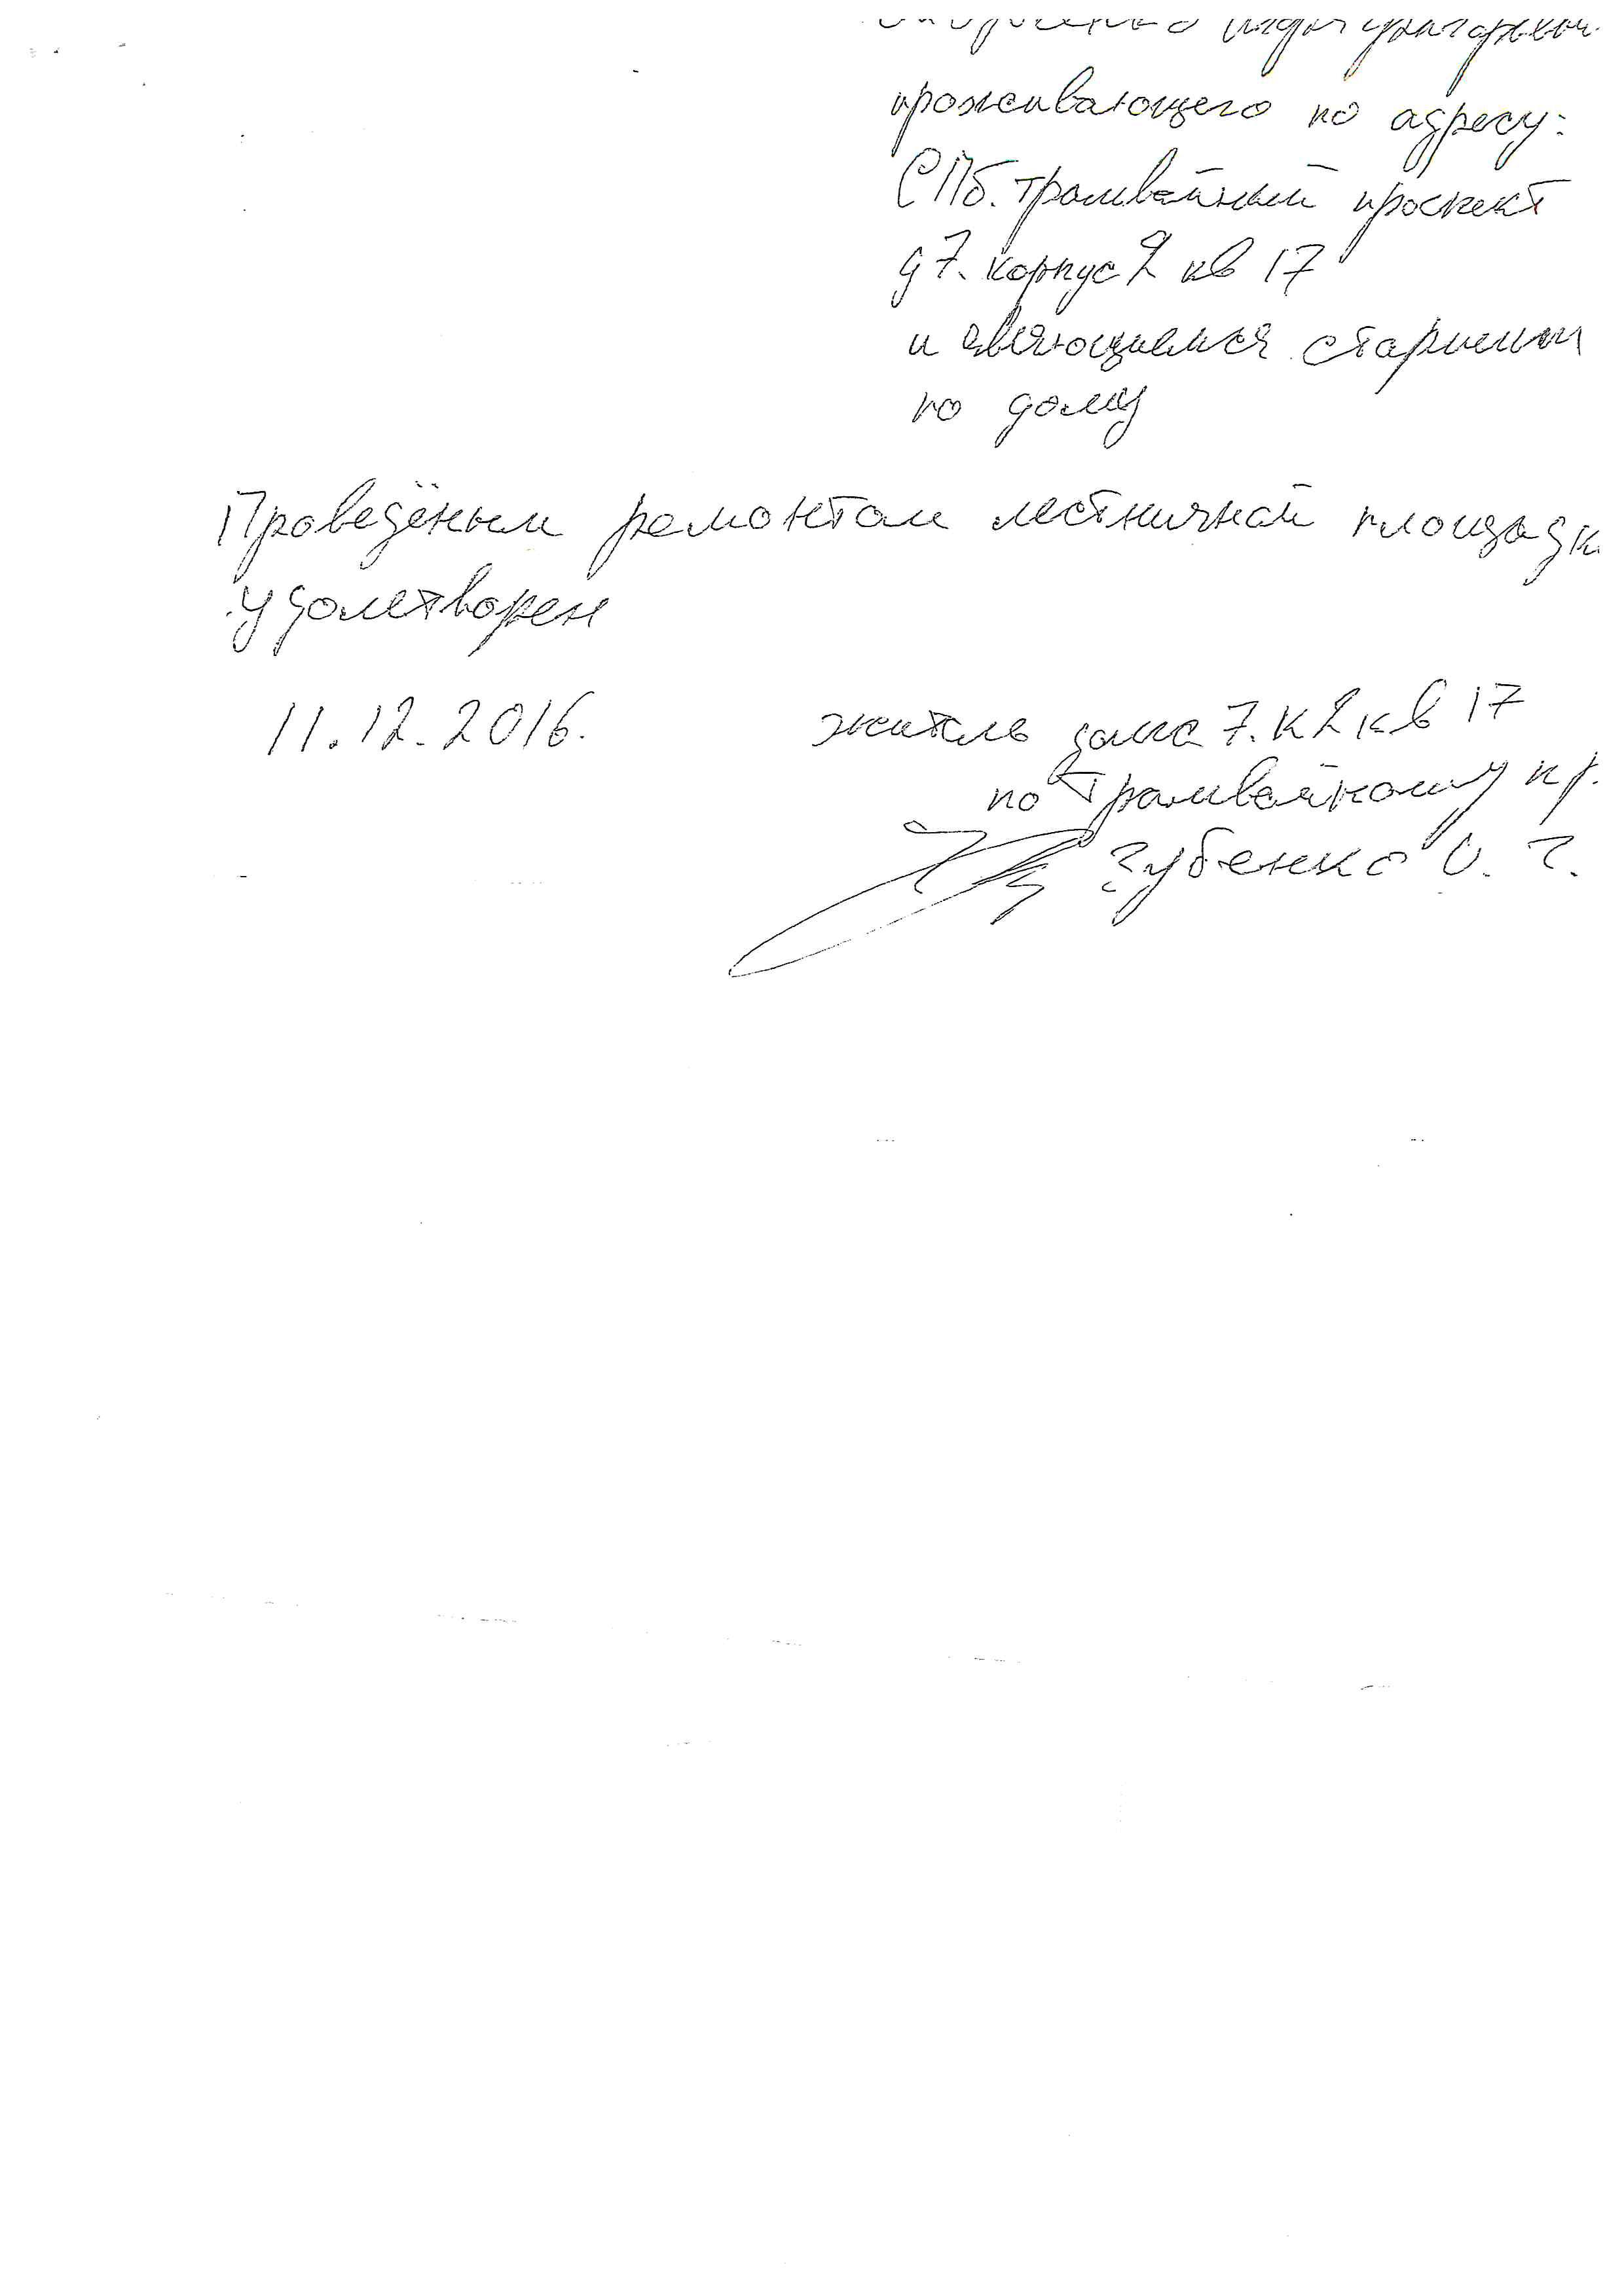 проживающего по адресу:
СПб. трамвайный проспект
д 7. корпус 2 кв 17
и являющимся старшим
по дому
Проведёным ремонтом лестничной площадк
удолетворен
11.12.2016.
житель дома 7. к 2 кв 17
по Трамвайному пр.
Зубенко О. Г.